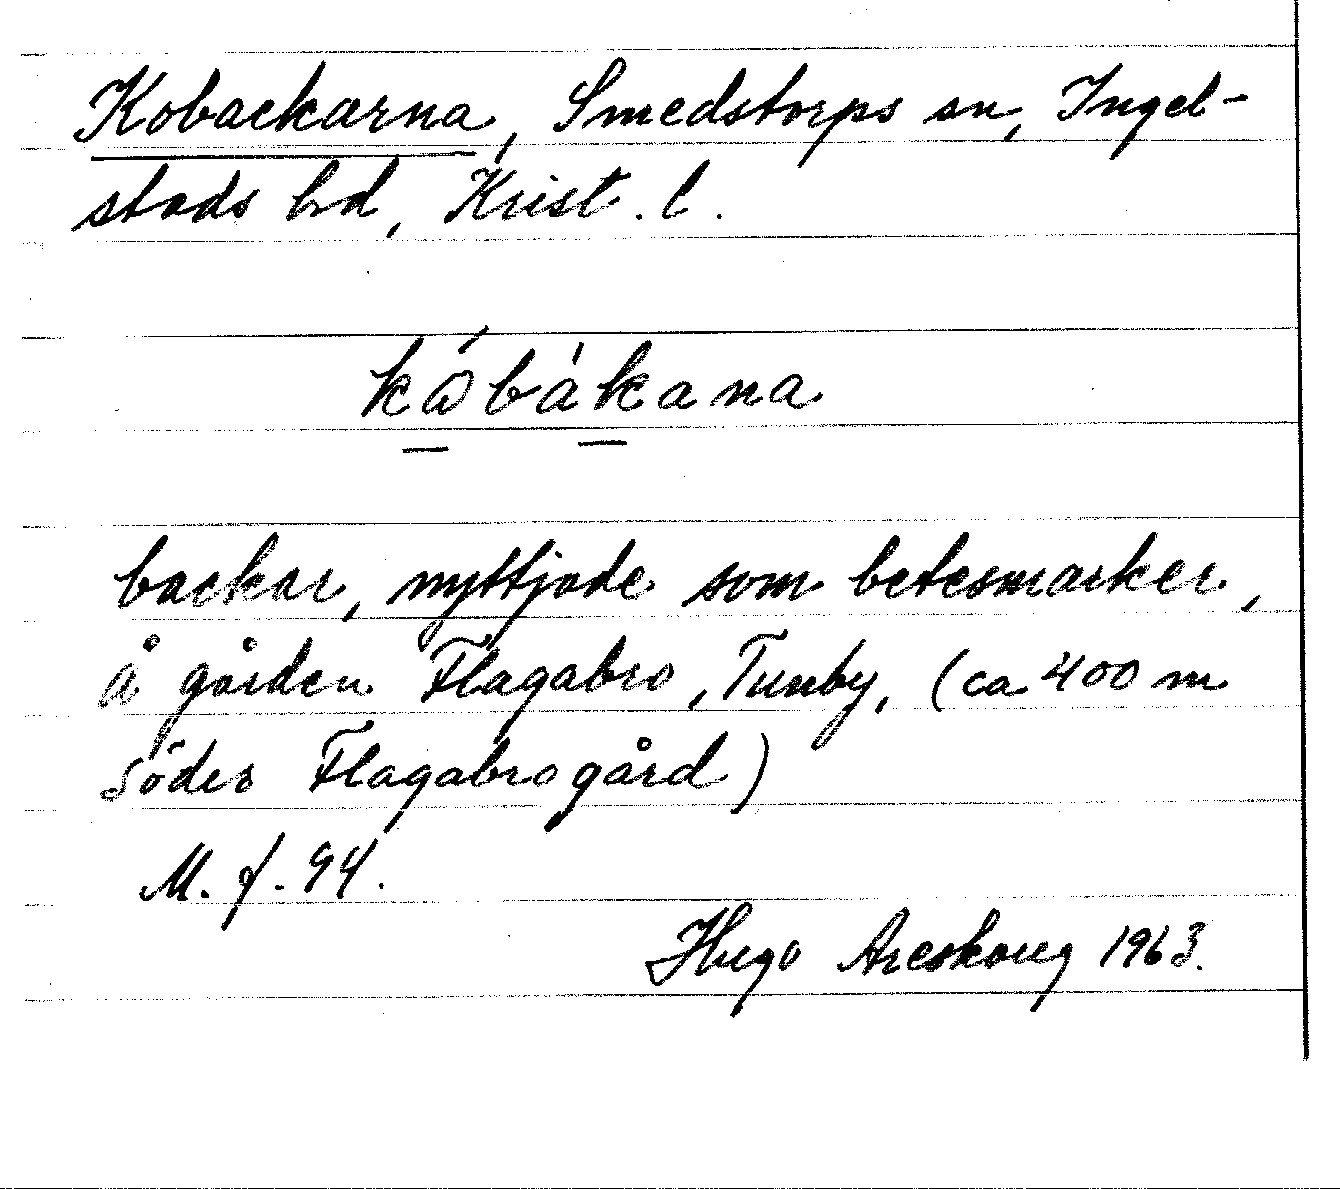 Kobackarna, Smedstorps sn, Ingel-
stads hd, Krist. l.
kåbákana
backar, nyttjade som betesmarker,
å gården Flagabro, Tunby, (ca 400 m
söder Flagabro gård)
M. f. 94.
Hugo Areskoug 1963.